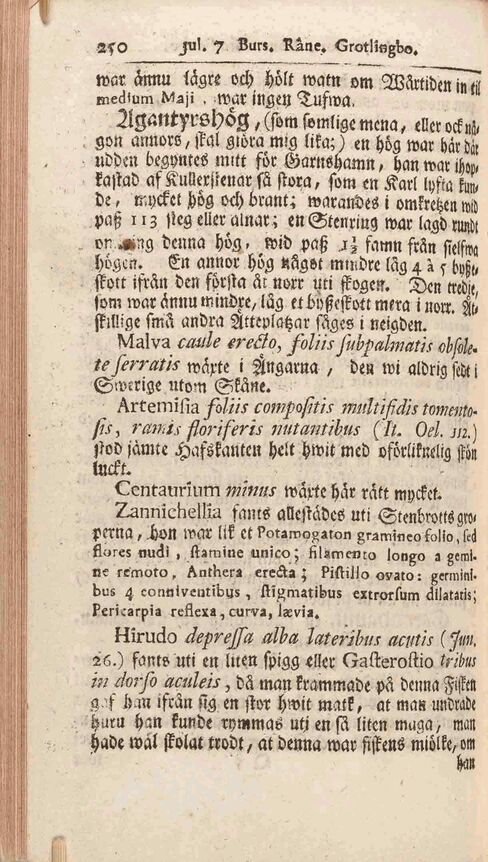 250 Jul. 7. Burs. Råne. Grotlingbo.
war ännu lägre och hölt watn om Wårtiden in til
medium Maji, war ingen Tufwa.
Agantyrshög, (som somlige mena, eller ock nå-
gon annors, skal giöra mig lika;) en hög war här där
udden begyntes mitt för Garnshamn, han war ihop-
kastad af Kullerstenar så stora, som en Karl lyfta kun-
de, mycket hög och brant; warandes i omkretzen wid
paß 113 steg eller alnar; en Stenring war lagd rundt
omkring denna hög, wid paß 1½ famn från sielfwa
högen. En annor hög något mindre låg 4 à 5 byße-
skott ifrån den första åt norr uti skogen. Den tredje,
som war ännu mindre, låg et byßeskott mera i norr. Åt-
skillige små andra Ätteplatzar säges i neigden.
Malva caule erecto, foliis subpalmatis obsole-
te serratis wäxte i Ängarna, den wi aldrig sedt i
Swerige utom Skåne.
Artemisia foliis compositis multifidis tomento-
sis, ramis floriferis nutantibus (It. Oel. 112.)
stod jämte Hafskanten helt hwit med oförliknelig skön
luckt.
Centaurium minus wäxte här rätt mycket.
Zannichellia fants allestädes uti Stenbrotts gro-
perna, hon war lik et Potamogaton gramineo folio, sed
flores nudi, stamine unico; filamento longo a germi-
ne remoto, Anthera erecta; Pistillo ovato: germini-
bus 4 conniventibus, stigmatibus extrorsum dilatatis;
Pericarpia reflexa, curva, lævia.
Hirudo depressa alba lateribus acutis (Jun.
26.) fants uti en liten spigg eller Gasterostio tribus
in dorso aculeis, då man krammade på denna Fisken
gaf han ifrån sig en stor hwit matk, at man undrade
huru han kunde rymmas uti en så liten maga, man
hade wäl skolat trodt, at denna war fiskens miölke, om
han